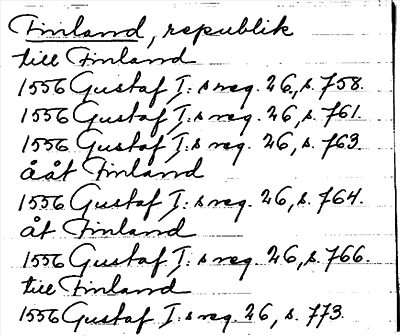 Finland, republik
till Finland
1556 Gustaf I:s reg. 26, s. 758.
1556 Gustaf I:s reg. 26, s. 761.
1556 Gustaf I:s reg. 26, s. 763
ååt Finland
1556 Gustaf I:s reg. 26, s. 764.
åt Finland
1556 Gustaf I:s reg. 26, s. 766.
till Finland
1556 Gustaf I:s reg. 26, s. 773.